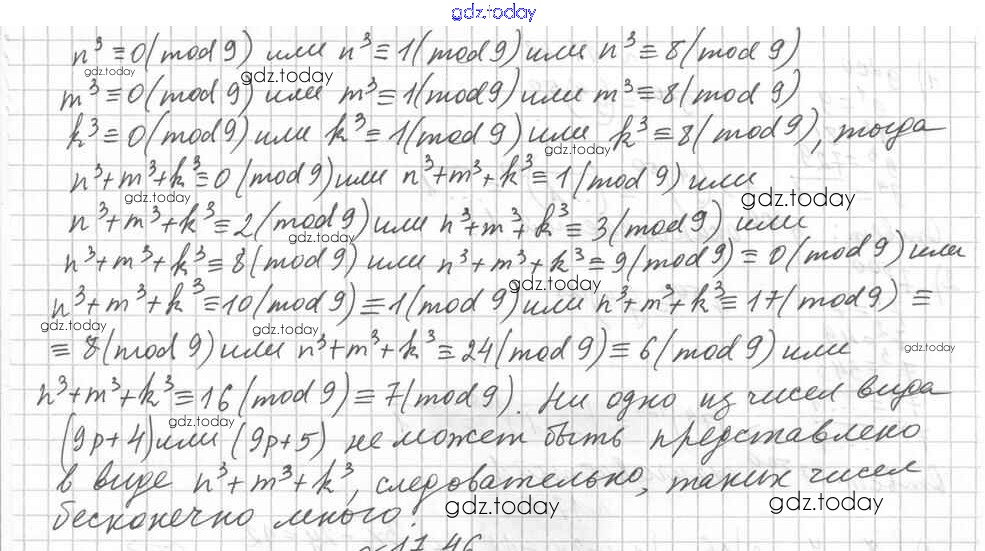 gdz.today
n³≡0(mod 9) или n³≡1(mod 9) или n³≡8(mod 9)
gdz.today gdz.today
m³≡0(mod 9) или m³≡1(mod 9) или m³≡8(mod 9)
k³≡0(mod 9) или k³≡1(mod 9) или k³≡8(mod 9), тогда
gdz.today
n³+m³+k³≡0(mod 9) или n³+m³+k³≡1(mod 9) или
gdz.today gdz.today
n³+m³+k³≡2(mod 9) или n³+m³+k³≡3(mod 9) или
gdz.today
n³+m³+k³≡8(mod 9) или n³+m³+k³≡9(mod 9)≡0(mod 9) или
gdz.today
n³+m³+k³≡10(mod 9)≡1(mod 9) или n³+m³+k³≡17(mod 9)≡
gdz.today gdz.today
≡8(mod 9) или n³+m³+k³≡24(mod 9)≡6(mod 9) или
gdz.today
n³+m³+k³≡16(mod 9)≡7(mod 9). Ни одно из чисел вида
gdz.today
(9p+4) или (9p+5) не может быть представлено
gdz.today
в виде n³+m³+k³, следовательно, таких чисел
gdz.today gdz.today
бесконечно много.
17.46